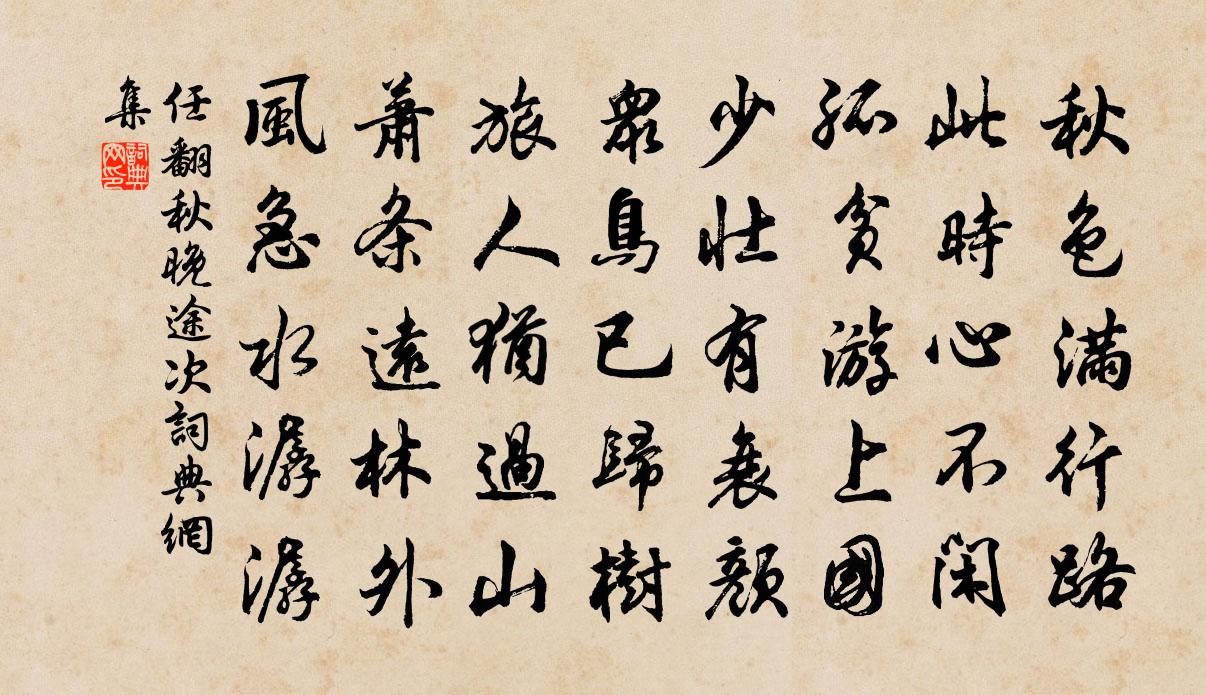 秋色滿行路
此時心不閑
孤貧游上國
少壯有衰顏
眾鳥已歸樹
旅人猶過山
蕭条遠林外
風急水潺潺
任翻秋晚途次詞典網
集
詞典
网印